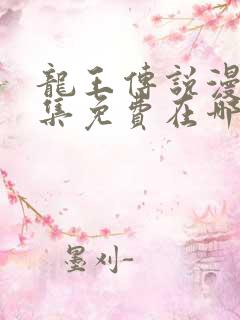 龍王傳說漫
集免費在哪
墨刈-